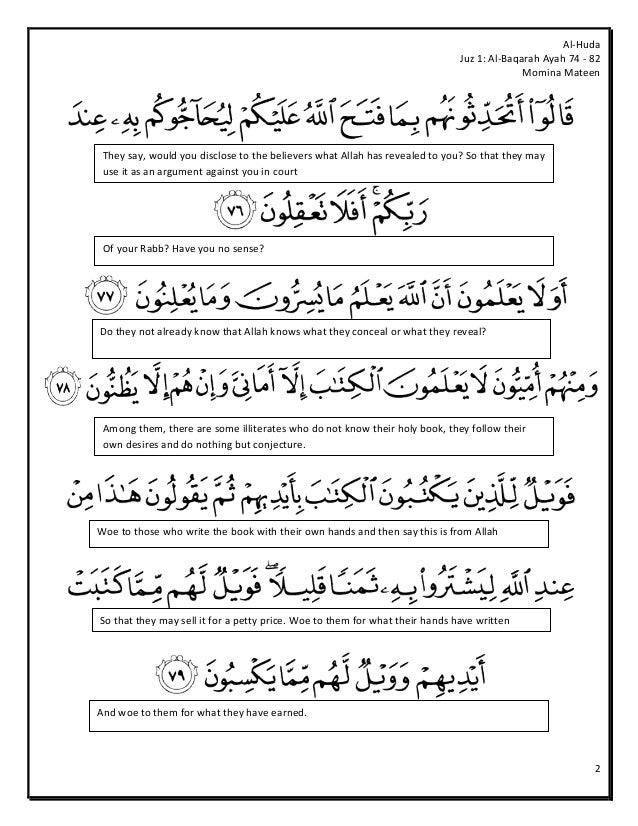 Al-Huda
Juz 1: Al-Baqarah Ayah 74 - 82
Momina Mateen
قَالُوٓا۟ أَتُحَدِّثُونَهُم بِمَا فَتَحَ ٱللَّهُ عَلَيْكُمْ لِيُحَآجُّوكُم بِهِۦ عِندَ
They say, would you disclose to the believers what Allah has revealed to you? So that they may
use it as an argument against you in court
رَبِّكُمْ ۚ أَفَلَا تَعْقِلُونَ ٧٦
Of your Rabb? Have you no sense?
أَوَلَا يَعْلَمُونَ أَنَّ ٱللَّهَ يَعْلَمُ مَا يُسِرُّونَ وَمَا يُعْلِنُونَ ٧٧
Do they not already know that Allah knows what they conceal or what they reveal?
وَمِنْهُمْ أُمِّيُّونَ لَا يَعْلَمُونَ ٱلْكِتَٰبَ إِلَّآ أَمَانِىَّ وَإِنْ هُمْ إِلَّا يَظُنُّونَ ٧٨
Among them, there are some illiterates who do not know their holy book, they follow their
own desires and do nothing but conjecture.
فَوَيْلٌ لِّلَّذِينَ يَكْتُبُونَ ٱلْكِتَٰبَ بِأَيْدِيهِمْ ثُمَّ يَقُولُونَ هَٰذَا مِنْ
Woe to those who write the book with their own hands and then say this is from Allah
عِندِ ٱللَّهِ لِيَشْتَرُوا۟ بِهِۦ ثَمَنًا قَلِيلًا ۖ فَوَيْلٌ لَّهُم مِّمَّا كَتَبَتْ
So that they may sell it for a petty price. Woe to them for what their hands have written
أَيْدِيهِمْ وَوَيْلٌ لَّهُم مِّمَّا يَكْسِبُونَ ٧٩
And woe to them for what they have earned.
2